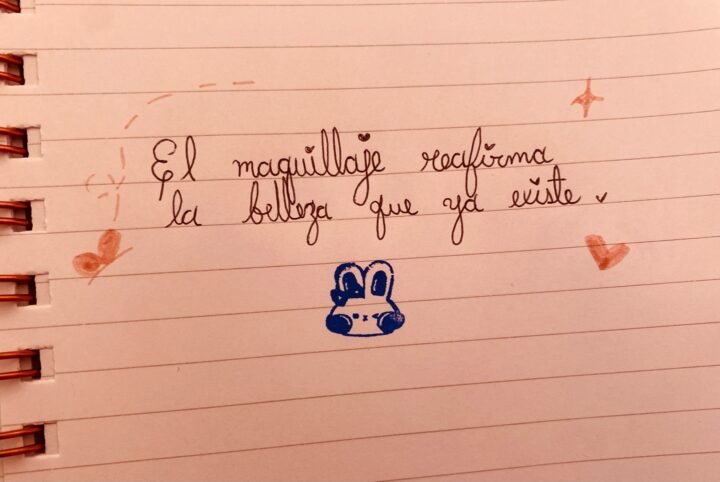 El maquillaje reafirma
la belleza que ya existe.